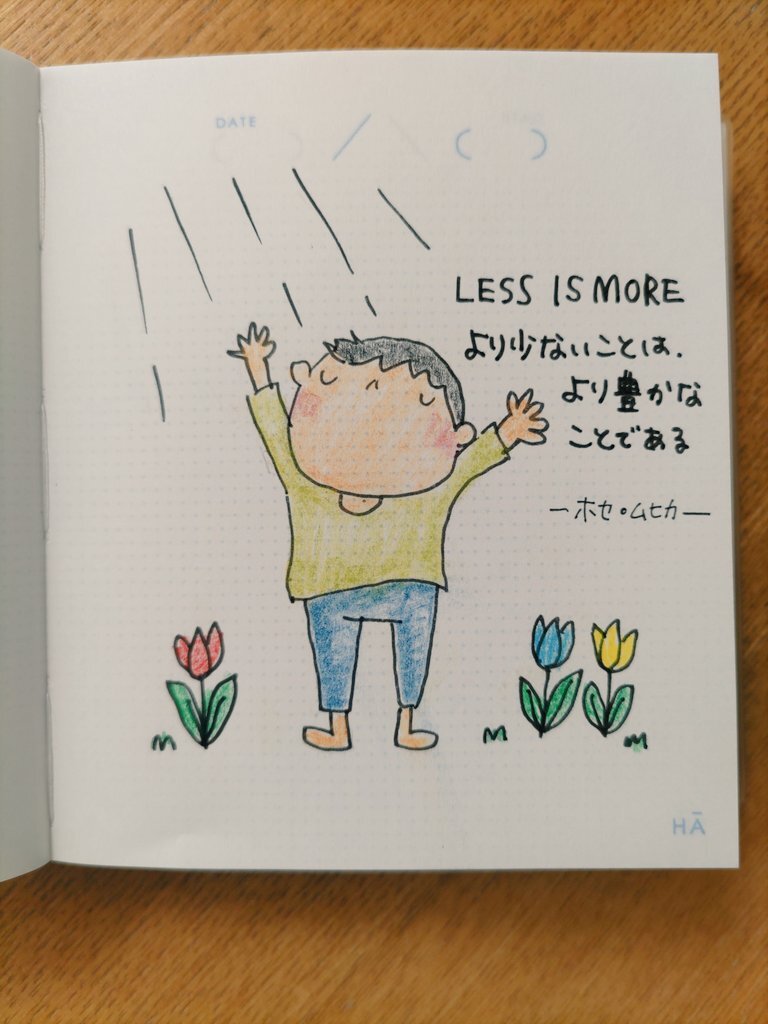 DATE
LESS IS MORE
より少ないことは、
より豊かな
ことである
ーホセ・ムヒカー
HĀ